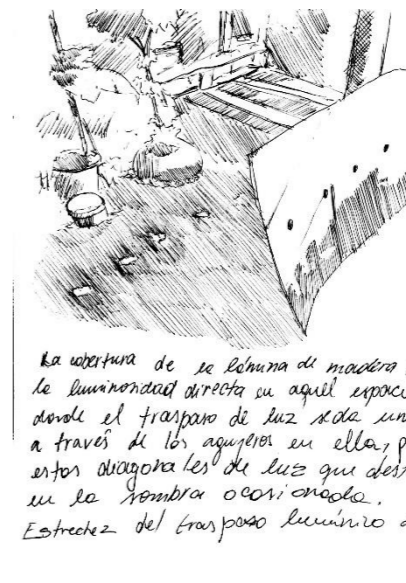 La cobertura de la lámina de madera
la luminosidad directa en aquel espaci
donde el traspaso de luz se da un
a través de los agujeros en ella, p
estas diagonales de luz que des
en la sombra ocasionada.
Estrechez del traspaso lumínico